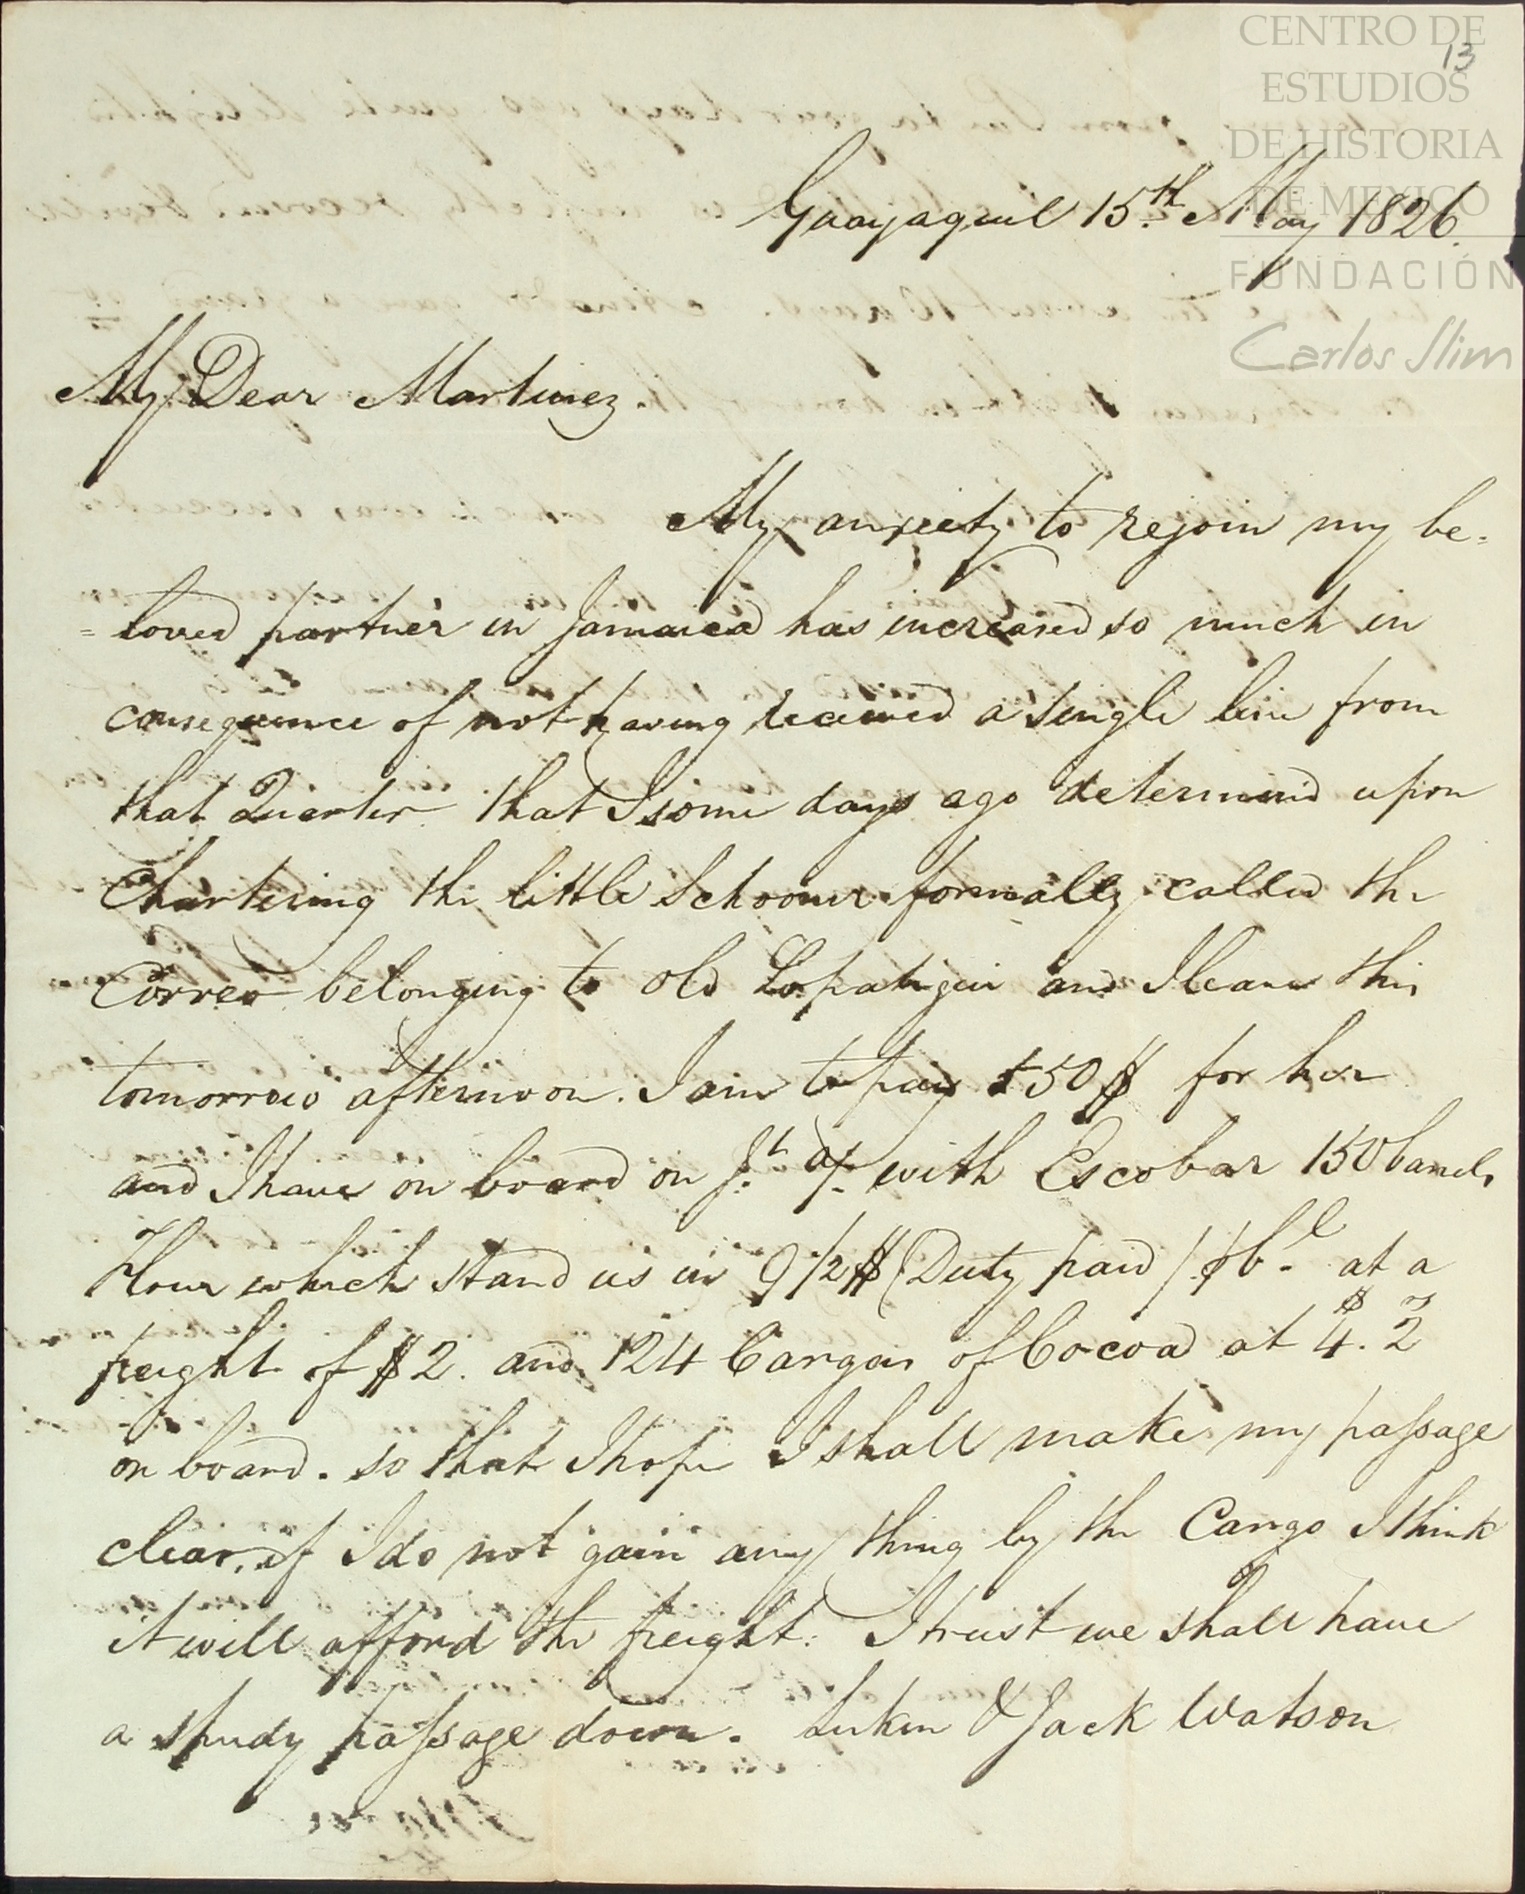 CENTRO DE
ESTUDIOS
DE HISTORIA
DE MEXICO
FUNDACIÓN
Carlos Slim
13
Guayaquil 15th May 1826.
My Dear Martinez.
My anxiety to rejoin my be-
=loved partner in Jamaica has increased so much in
consequence of not having received a single line from
that Quarter that I some days ago determined upon
Chartering the little Schooner formally called the
Correo belonging to Old and I leave this
tomorrow afternoon. I am to pay 50$ for her
and I have on board on Jt a/c with Escobar 150 barrels
Flour which stand us in 9 1/2$ (Duty paid) ⅌ bl at a
freight of $2. and 124 Cargas of Cocoa at $4.2
on board. so that I hope I shall make my passage
clear, if I do not gain any thing by the Cargo I think
it will afford the freight. I trust we shall have
a speedy passage down. & Jack Watson